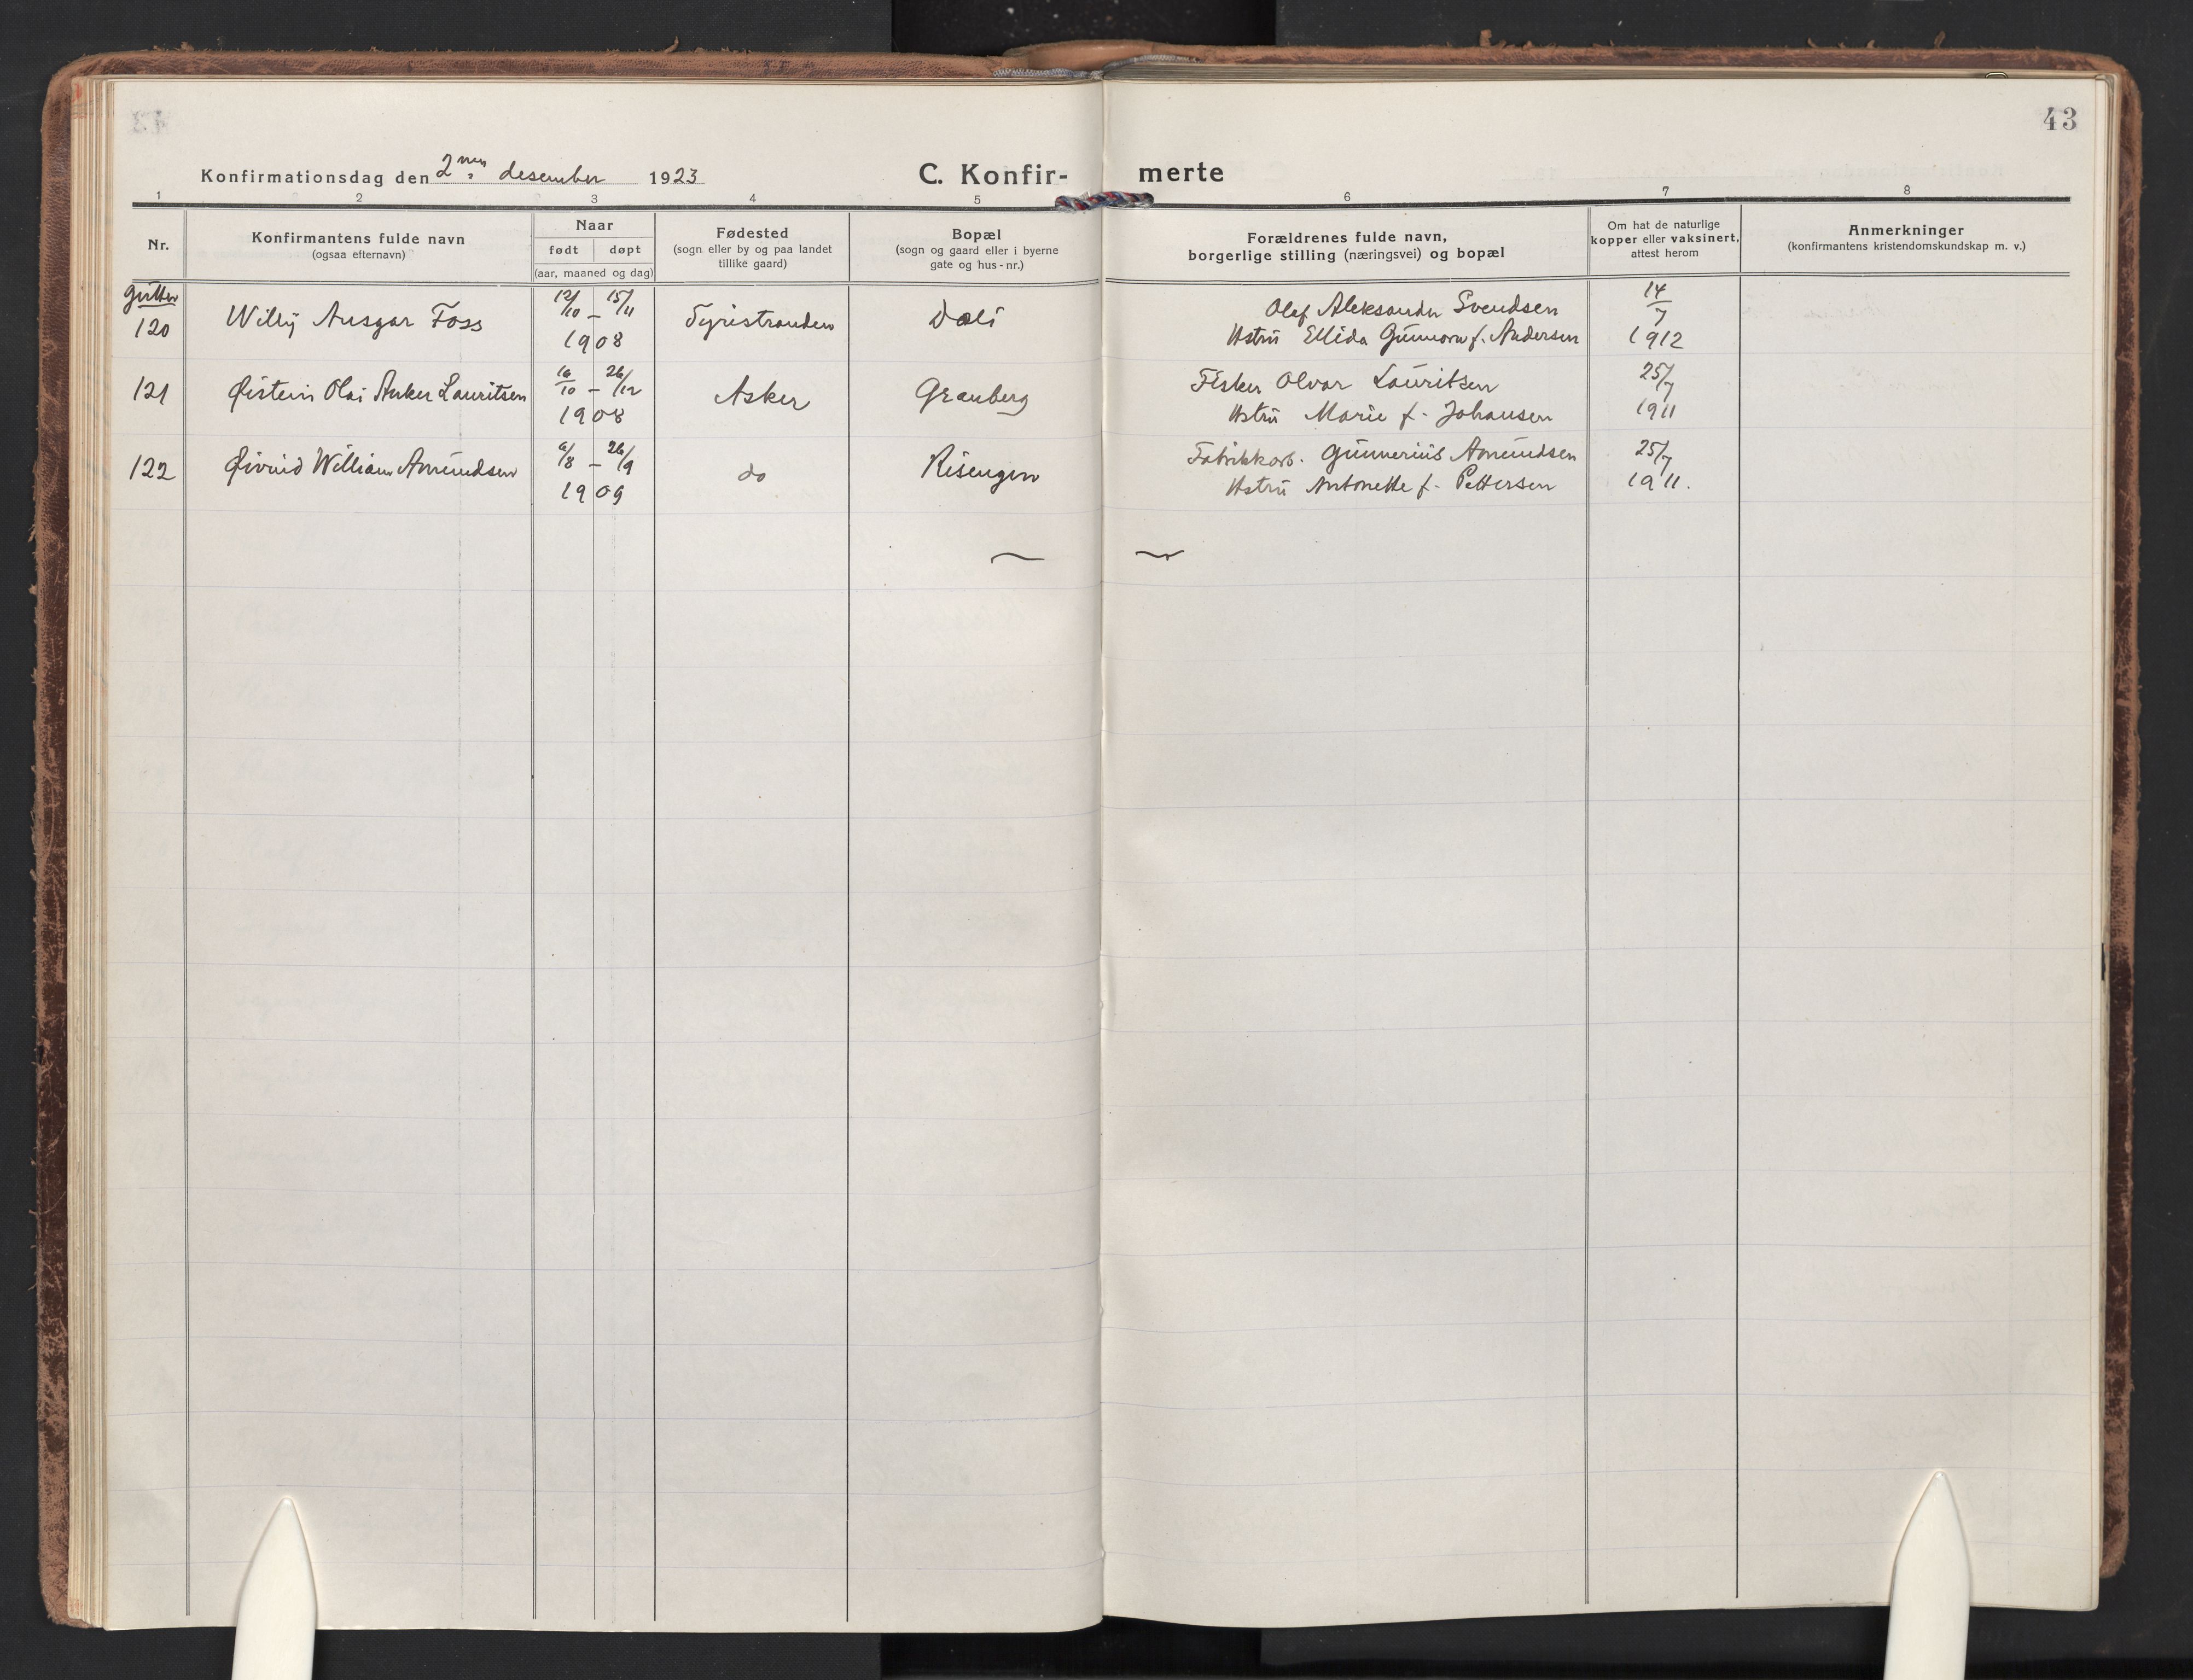 43
Konfirmationsdag den 2nen desember 1923
C. Konfir-merte
1 2 3 4 5 6 7 8
Nr.
Konfirmantens fulde navn
(ogsaa efternavn)
Naar
født døpt
(aar, maaned og dag)
Fødested
(sogn eller by og paa landet
tillike gaard)
Bopæl
(sogn og gaard eller i byerne
gate og hus-nr.)
Forældrenes fulde navn,
borgerlige stilling (næringsvei) og bopæl
Om hat de naturlige
kopper eller vaksinert,
attest herom
Anmerkninger
(konfirmantens kristendomskundskap m. v.)
Gutter
120 Willy Ansgar Foss 12/10 – 15/11 Tyristranden Dæli Olaf Aleksander Svendsen 14/7
1908 Hstru Ellida Gunnora f. Andersen 1912
121 Øistein Olai Anker Lauritsen 16/10 – 26/12 Asker Granberg Fisker Olvar Lauritsen 25/7
1908 Hstru Marie f. Johansen 1911
122 Øivind William Amundsen 6/8 – 26/9 do Risengen Fabrikkarb. Gunnerius Amundsen 25/7
1909 Hstru Antonette f. Pettersen 1911.